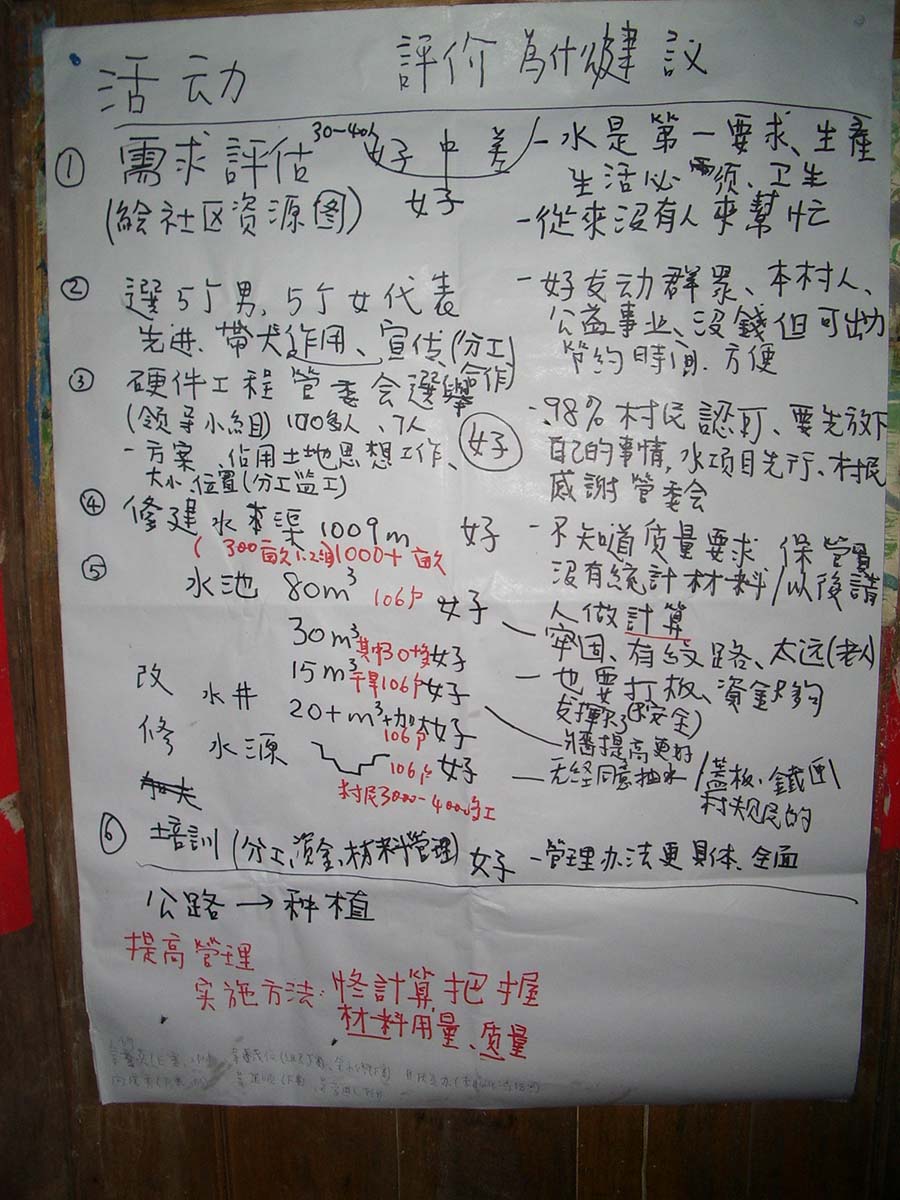 活动 評价 為什么 建议
① 需求評估 30-40人 好 中 差 - 水是第一要求、生産
生活必需须、卫生
(絵社区資源图) 好 - 從來没有人來幫忙
② 選5个男,5个女代表 - 好发动群眾、本村人、
先进、帶头作用、宣传、(分工合作) 公益事业、沒錢但可出力
節约時间、方便
③ 硬件工程管委会選舉
(领导小組) 100多人、7人 好 - 98%村民認可、要先放下
- 方案、佔用土地思想工作、 自己的事情,水项目先行、村民
大小、位置(分工监工) 感謝管委会
④ 修建水渠 1009m 好 - 不知道质量要求 保管員
1000+亩 没有統計材料/以後請
⑤ 水池 80m³ 106户 好 人做計算
30m³ 好 - 牢固、有紋路、太远(老人)
15m³ 干旱106户 好 - 也要打板、資金足夠
改 水井 20+m³+加大 好
106户
修 水源 106户 好 - 墻提高更好
- 无经同意抽水/蓋板、鐵
村规民的
村民3000-4000多工
⑥ 培訓(分工、資金、材料管理) 好 - 管理办法更具体、全面
公路→种植
提高管理
实施方法: 計算、把握
材料用量、质量